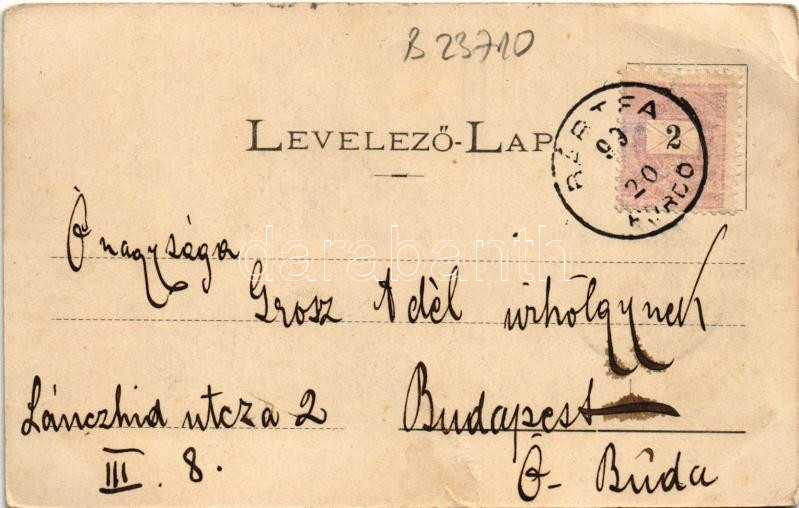 B 23710
LEVELEZŐ-LAP
BÁRTFA
99
20
FÜRDŐ
2
Ő nagysága
darabanth
Grosz Adél úrhölgynek
Lánczhid utcza 2
Budapest
III. 8.
Ó-Búda